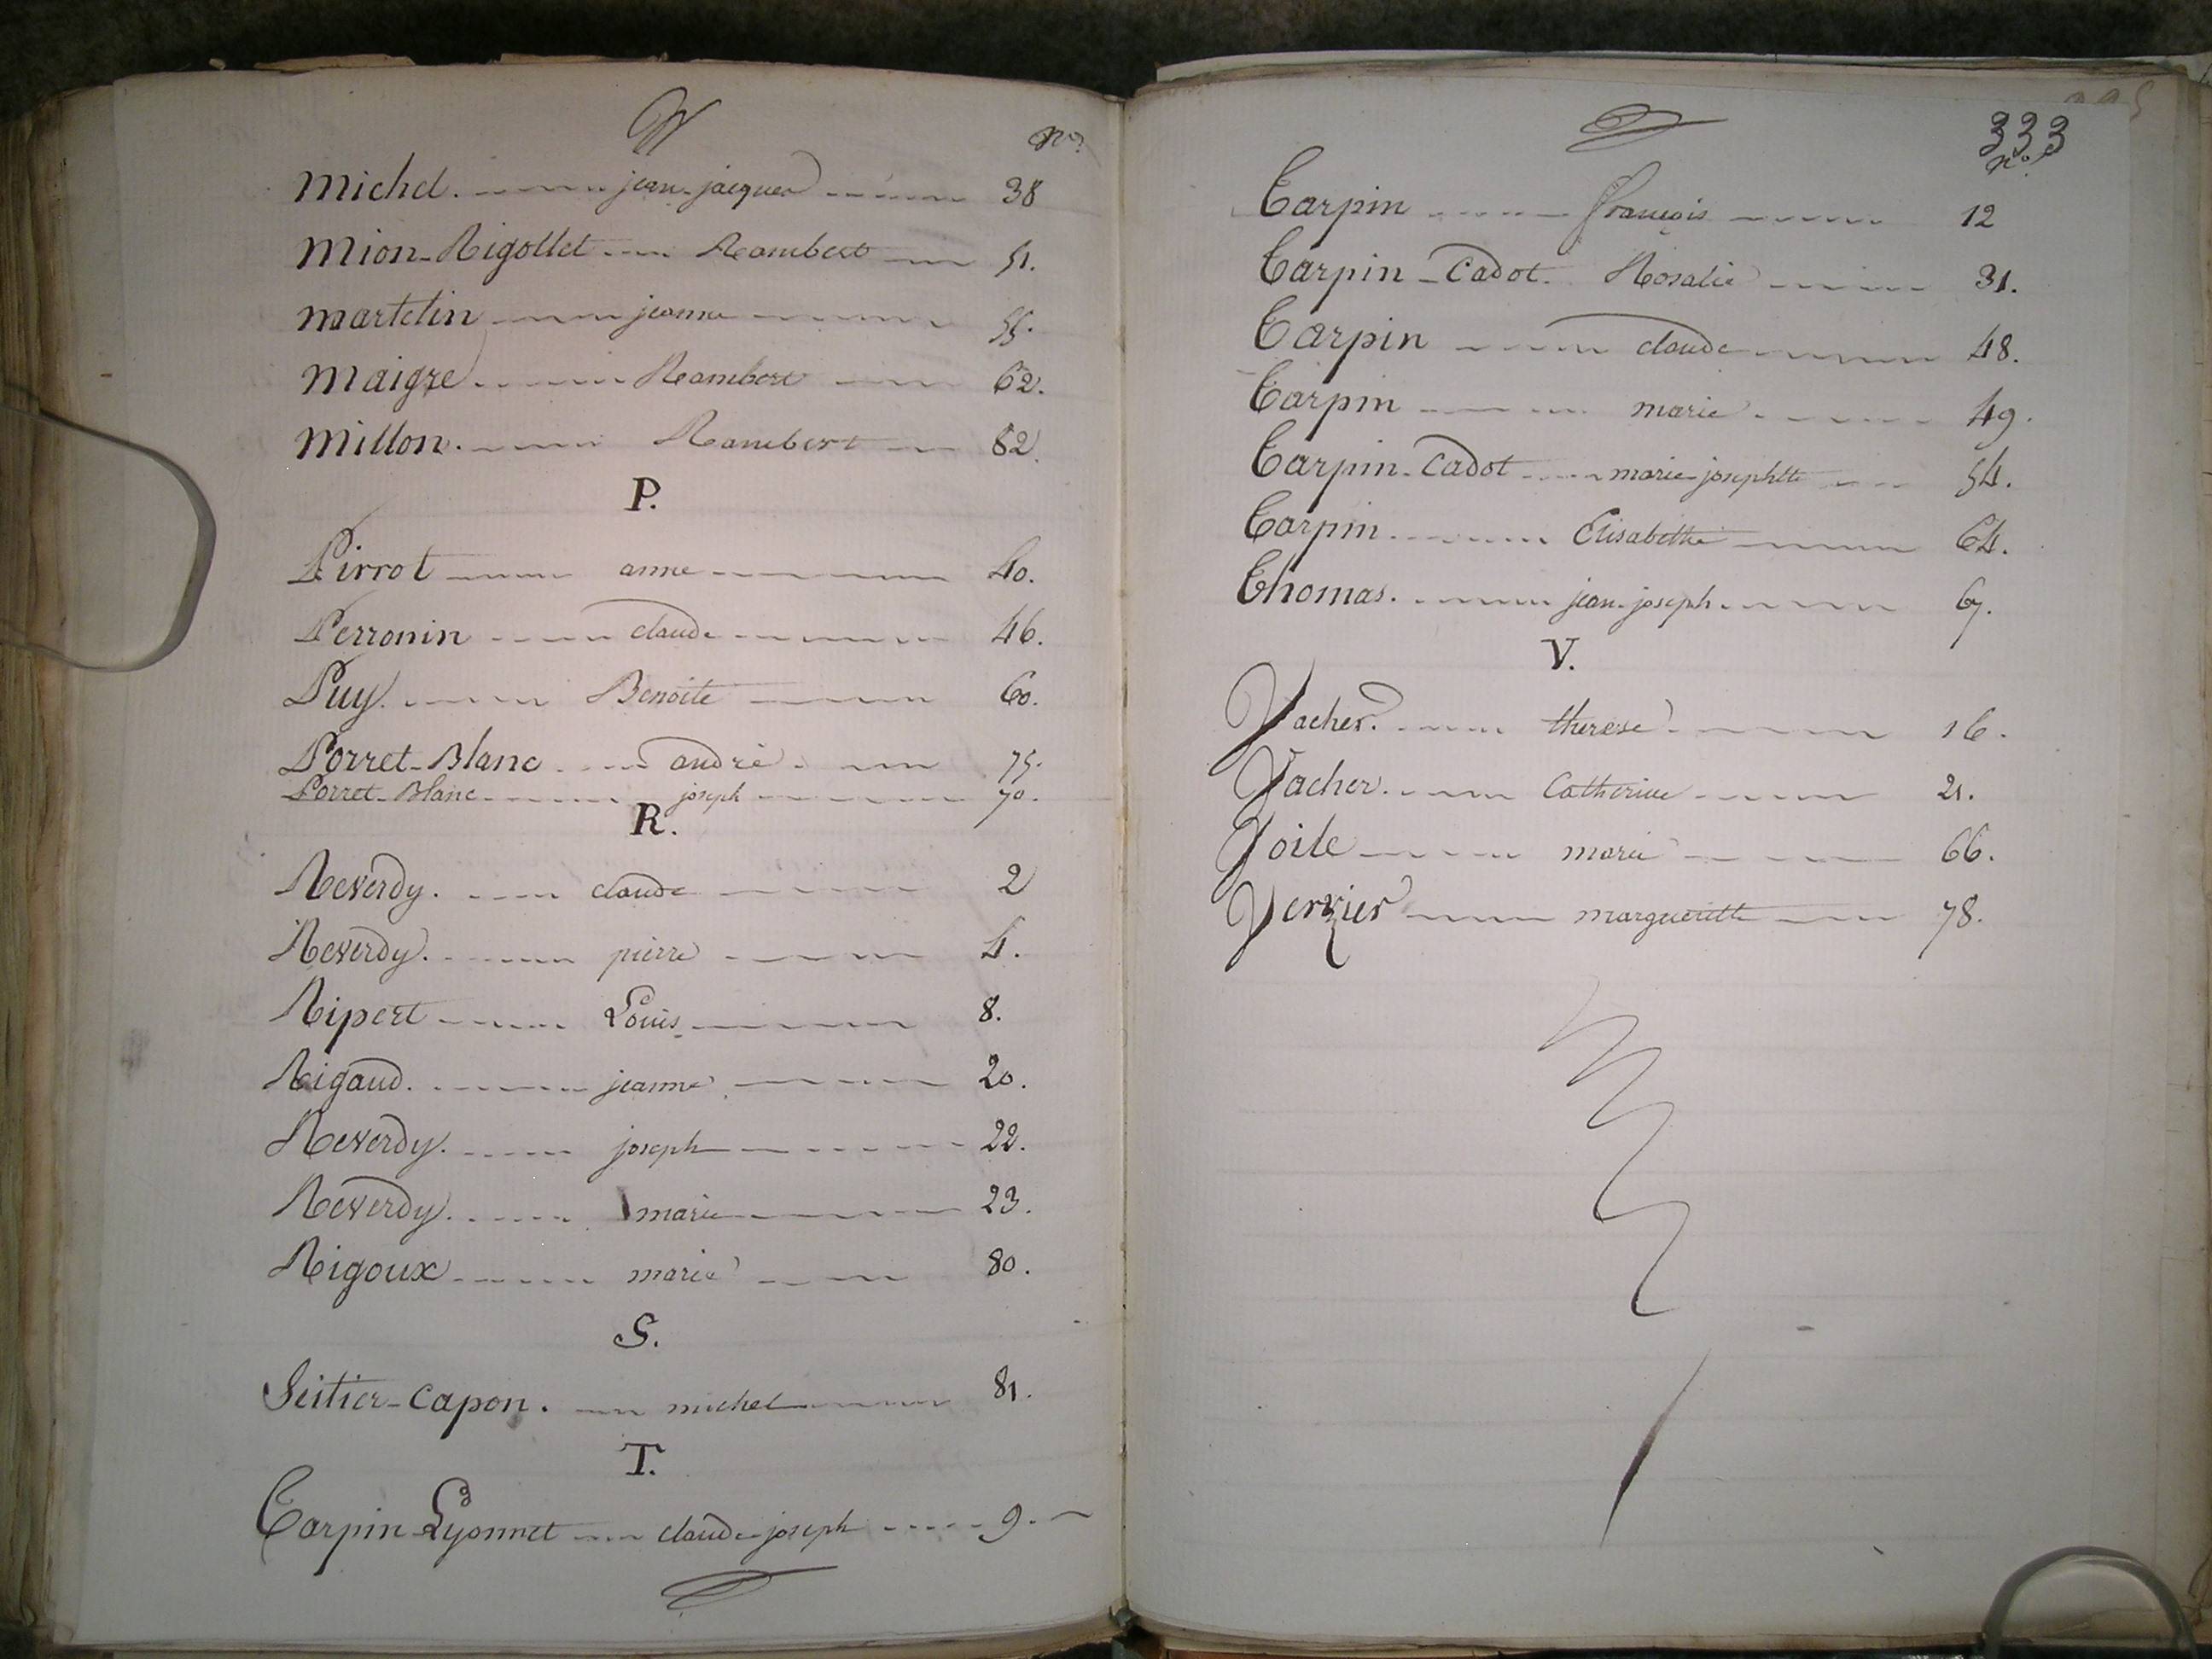 n°.
Michel. jean-jacques 38
Mion-Rigollet Rambert 51.
Martelin jeanne 55.
Maigre Rambert 62.
Millon. Rambert 82.
P.
Pirrot anne 40.
Perronin claude 46.
Puy. Benoite 60.
Porret-Blanc andré 75.
Porret-Blanc joseph 70.
R.
Reverdy. claude 2
Reverdy. pierre 4.
Ripert Louis 8.
Rigaud. jeanne 20.
Reverdy. joseph 22.
Reverdy. marie 23.
Rigoux marie 80.
S.
Seitier-Capon. michel 81.
T.
Tarpin-Lyonnet claude-joseph 9.
333
n°.
Tarpin françois 12
Tarpin-Cadot. Rosalie 31.
Tarpin claude 48.
Tarpin marie 49.
Tarpin-Cadot marie-josephtte 54.
Tarpin Elisabethe 64.
Thomas. jean-joseph 67.
V.
Vacher. therese 16.
Vacher. Catherine 21.
Voile marie 66.
Verzier margueritte 78.